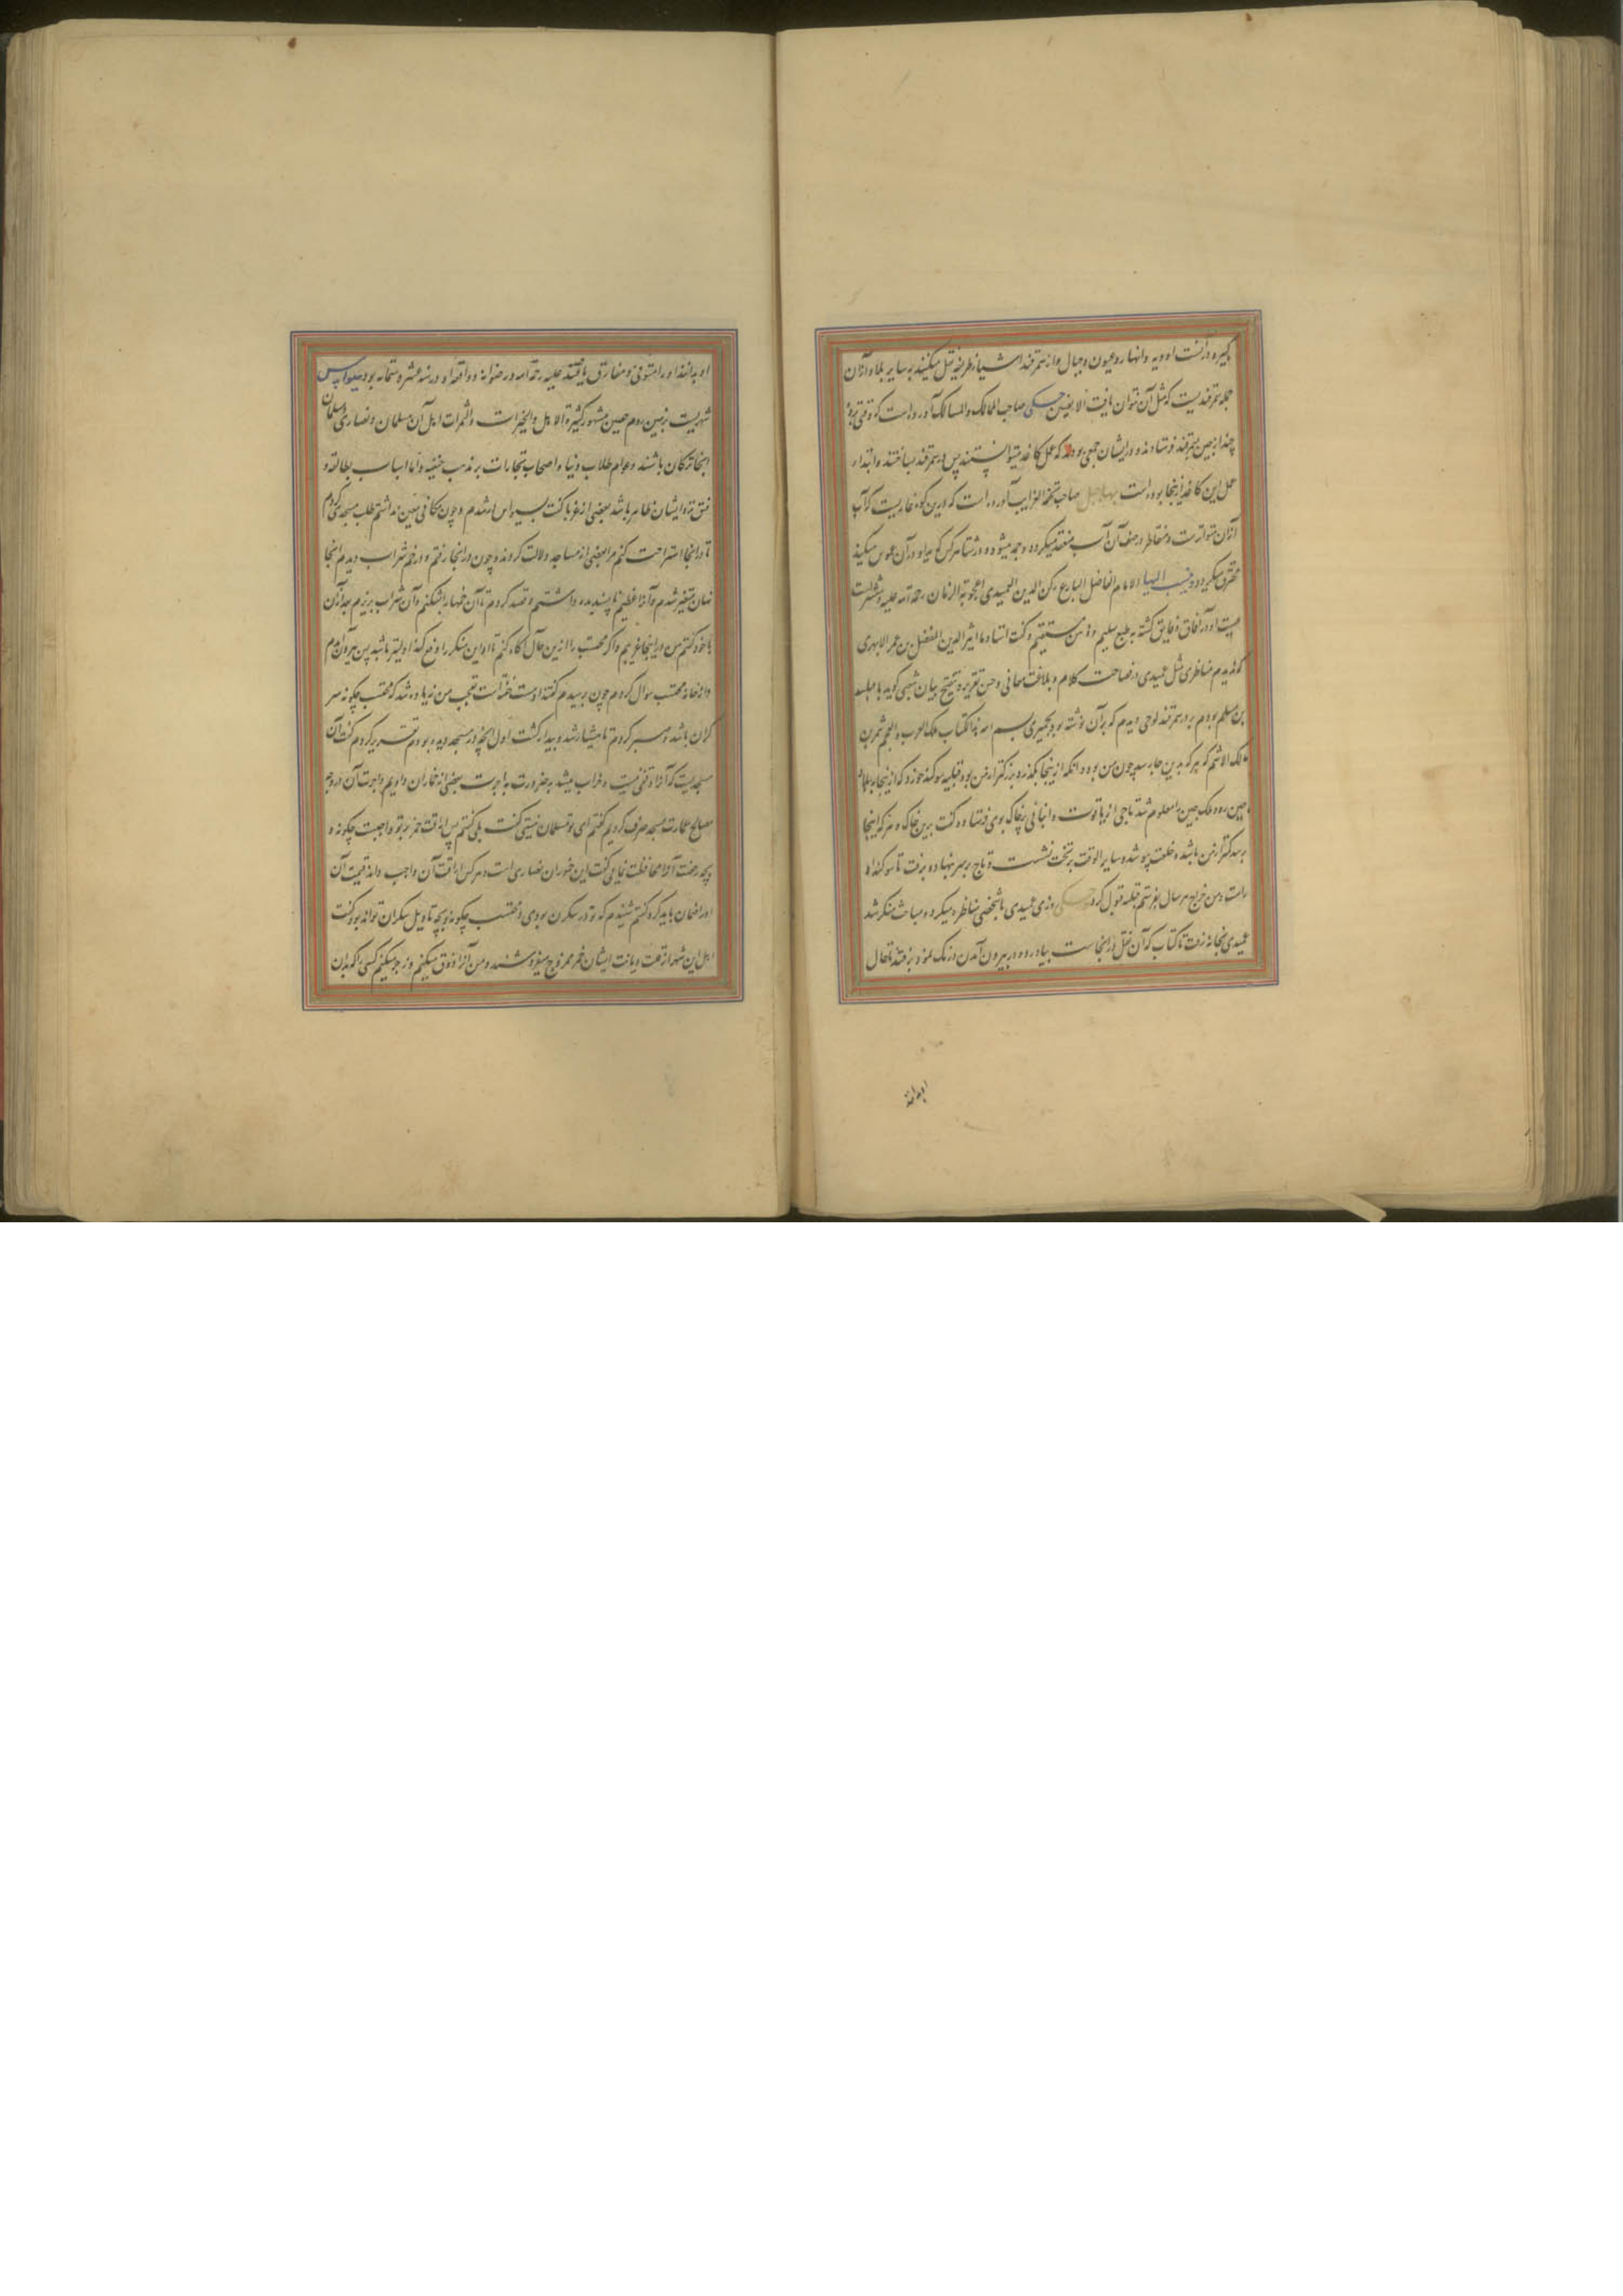 کبیره در آنست اودیه و انهار و عیون و جبال و از سمرقند اشیا ظریفه نقل میکنند بسایر بلاد و ازان
جمله سمرقندیست که مثل آن نتوان یافت الا بصین حکی صاحب الممالک و المسالک آورده است که وقتی برده
چند از صین بسمرقند فرستادند و در ایشان جمعی بودند که عمل کاغذ میتوانستند پس در سمرقند بساختند و ابتداء
عمل این کاغذ از نجا بوده است بها جبل صاحب تحفة الغرایب آورده است که درین کوه غاریست که آب
ازان متواتر است و متقاطر در صیف آن آب منعقد میکردد و جمد میشود و در شتا هر کس که ید او در آن غوس میکند
محترق میکردد و ینسب الیها الامام الفاضل البارع رکن الدین العمیدی اعجوبة الزمان رحمة الله علیه و منتشر است
صیت او در آفاق و فایق کشته بطبع سلیم و ذهن مستقیم و کفت استاد ما اثیر الدین المفضل بن عمر الابهری
که ندیدم مناظری مثل عمیدی در فصاحت کلام و بلاغت معانی و حسن تقریر و تنقیح بیان شبهی کوید با مسلمه
بن مسلم بودم بر در سمرقند لوحی دیدم که بر آن نوشته بود بحمیری بسم الله هذا الکتاب ملک العرب و العجم شمر بن
مالک الاشم که هر که بدین جا رسد چون من بود و آنکه از ینجا بکذرد بزرکتر از من بود قتیبه سوکند خورد که از ینجا ببلاد
صین رود ملک صین را معلوم شد تاجی از یاقوت و انبانی پر خاک بوی فرستاد و کفت برین خاک و هر که اینجا
برسد کمتر از من باشد و خلعت پوشد و سایر الوقت بر تخت نشست و تاج بر سر نهاد و برفت تا سوکند او
راست و من خراج هر سال بفرستم قتیبه قبول کرد حکی روزی عمیدی با شخصی مناظره میکرد و مباحث منکر شد
عمیدی بخانه رفت تا کتاب که آن نقل در انجاست بیاورد و در بیرون آمدن درنک نمود برفتند تا حال
او بدانند او را متوفی و مفارق یافتند علیه رحمة الله و رضوانه و واقعه او در سنه عشر و ستمایه بود سیواس
شهریست بزمین روم حصین مشهور کثیرة الاهل و الخیرات و الثمرات اهل آن مسلمان و نصاری و مسلمان
انجا ترکان باشند و عوام طلاب دنیا و اصحاب تجارات بر مذهب حنفیه و اما اسباب بطالت و
فسق نزد ایشان ظاهر باشد بعضی از غربا کفت بسیواس رسیدم و چون مکانی معین نداشتم طلب مسجدی کردم
تا در انجا استراحت کنم مرا بعضی از مساجد دلالت کردند و چون در انجا رفتم و در خم شراب دیدم انجا
نهان متحیر شدم و آنرا عظیم ناپسندیده داشتم و قصد کردم تا آن خمها را بشکنم و آن شراب بریزم بعد ازان
با خود کفتم من در اینجا غریبم و اکر محتسب را ازین حال آکاه کنم تا او این منکر را دفع کند اولیتر باشد پس بیرون آمدم
و از خانه محتسب سوال کردم چون برسیدم کفتند او مست خفته است تعجب من زیاده شد که محتسب چکونه سر
کران باشد و صبر کردم تا هشیار شد و بیدار کشت اول آنچه در مسجد دیده بودم تقریر کردم کفت آن
مسجدیست که آنرا وقفی نیست و خراب میشد بضرورت باجرت ببعضی از خماران دادیم و اجرت آن در وجه
مصالح عمارت مسجد صرف کردیم کفتم ای تو مسلمان نیستی کفت بلی کفتم پس اراقت خمر بر تو واجبست چکونه و
بچه رخصت آنرا محافظت نمایی کفت این خوران نصاری است و هر کس اراقت آن واجب داند قیمت آن
او را ضمان باید کرد کفتم شنیدم که تو در سکرن بودی و محتسب چکونه و بچه تاویل سکران تواند بود کفت
اهل این شهر از قلت دیانت ایشان خمر ممزوج میفروشند و من آنرا ذوق میکنم و زجر میکنم کسی را که بدان
او بدانند